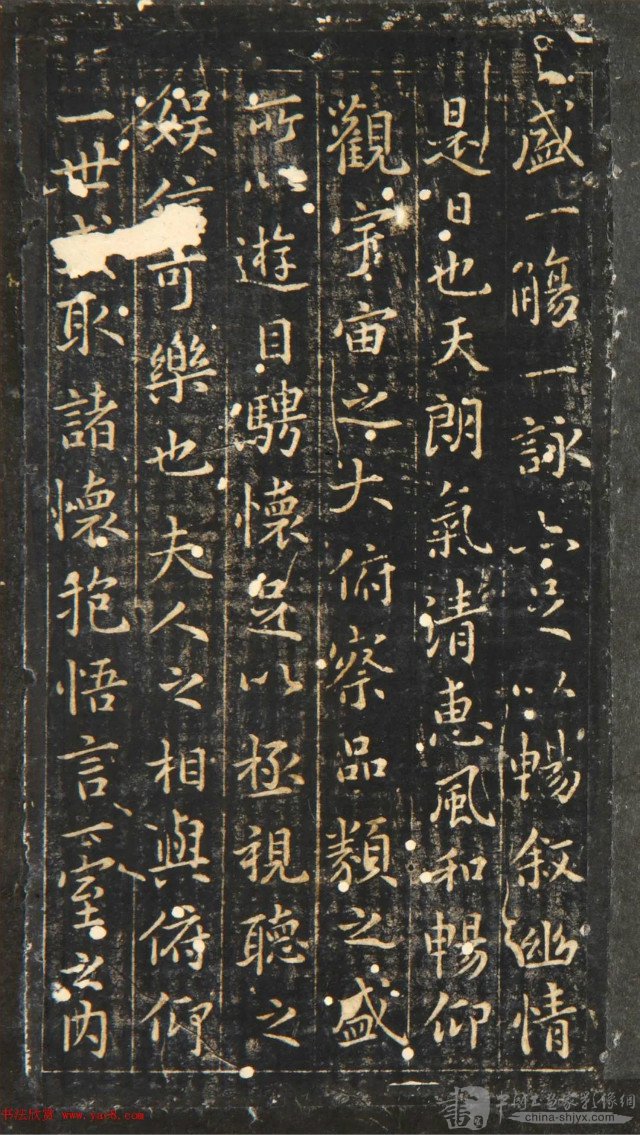 盛一觴一詠亦足以暢叙幽情
是日也天朗氣清惠風和暢仰
觀宇宙之大俯察品類之盛
所以遊目騁懷足以極視聽之
娛信可樂也夫人之相與俯仰
一世取諸懷抱悟言一室之内
书法欣赏 www.yac8.com
書 中國书画家影像網
china-shjyx.com